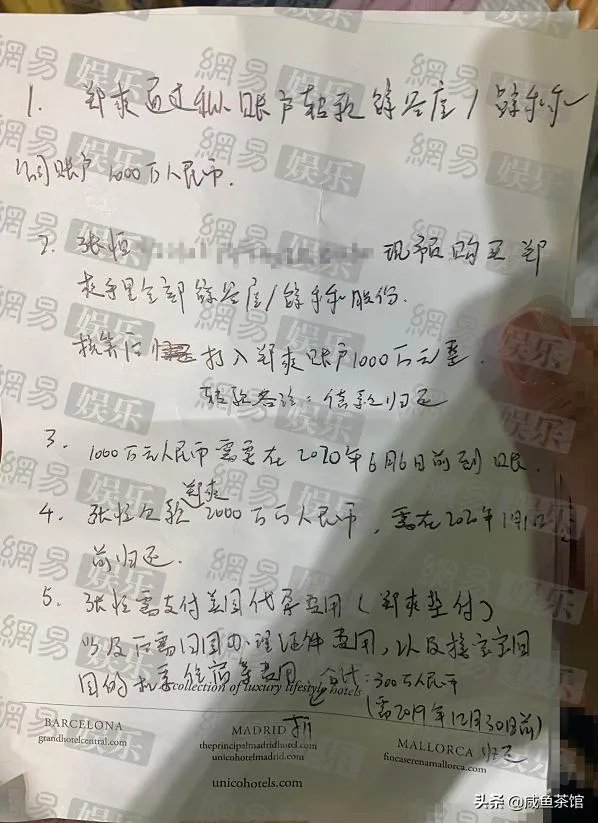 1. 郑爽通过私账户转款
公司账户1000万人民币.
2. 张恒 现预购买郑
爽手里全部 股份.
核算后 打入郑爽账户1000万元整.
转款备注:借款归还
3. 1000万元人民币需要在2020年6月6日前到账.
4. 张恒欠款郑爽2000万元人民币,需在2020年1月1日
前归还.
5. 张恒需支付美国代孕费用(郑爽垫付)
以及后需回国办理证件费用,以及接宝宝回
国的机票住宿等费用 合计:300万人民币
collection of luxury lifestyle hotels
(需2019年12月30日前)
归还
BARCELONA
grandhotelcentral.com
MADRID
theprincipalmadridhotel.com
unicohotelmadrid.com
MALLORCA
fincaserenamallorca.com
unicohotels.com
網易娱乐
头条 @咸鱼茶馆